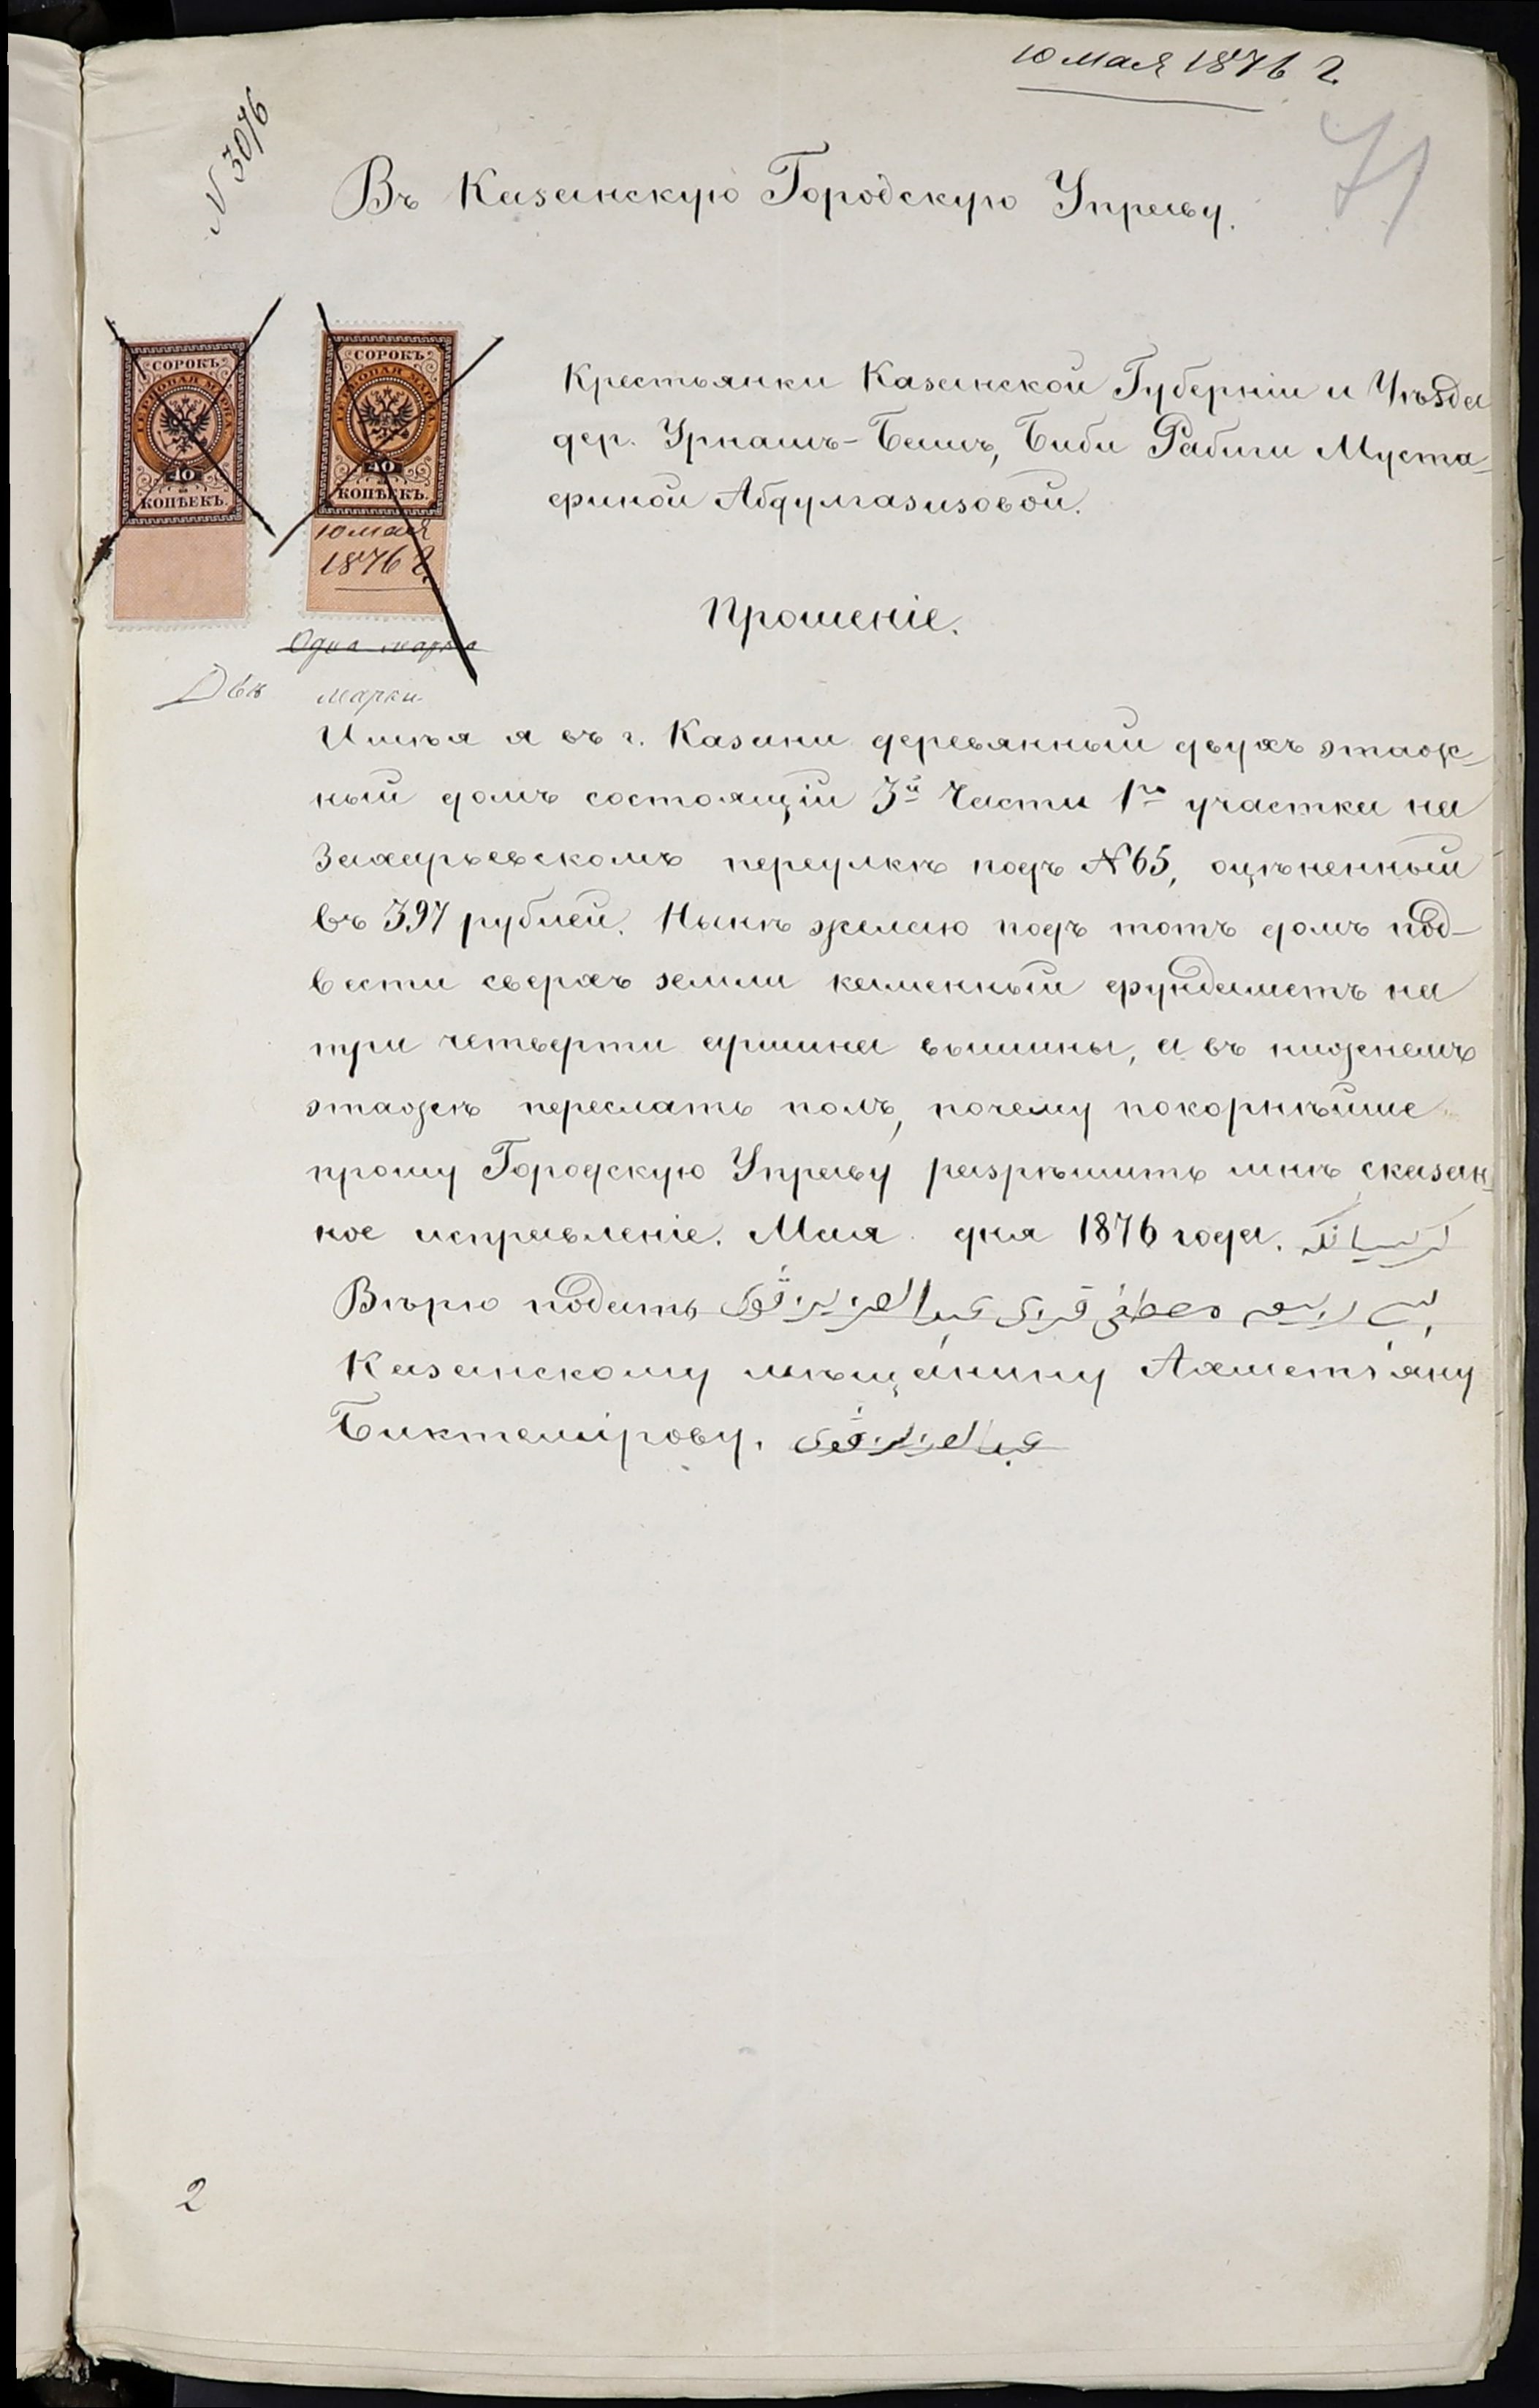 10 мая 1876 г.
N 3076
71
Въ Казанскую Городскую Управу.
СОРОКЪ
ГЕРБОВАЯ МАРКА
40
КОПѢЕКЪ.
СОРОКЪ
ГЕРБОВАЯ МАРКА
40
КОПѢЕКЪ.
10 мая
1876 г.
Одна марка
Двѣ марки
Крестьянки Казанской Губерніи и Уѣзда
дер. Урнашъ-Башъ, Биби Рабиги Муста-
финой Абдулгазизовой.
Прошеніе.
Имѣя я въ г. Казани деревянный двухъ этаж-
ный домъ состоящій 3й Части 1го участка на
Захарьевскомъ переулкѣ подъ №65, оцѣненный
въ 397 рублей. Нынѣ желаю подъ тотъ домъ под-
вести сверхъ земли каменный фундаметъ на
три четверти аршина вышины, а въ нижнемъ
этажѣ переслать полъ, почему покорнѣйше
прошу Городскую Управу разрѣшить мнѣ сказан-
ное исправленіе. Мая дня 1876 года. كرسيانكه
Вѣрю подать بيبي ربيعه مصطفى قزى عبدالعزيزوفوى
Казанскому мѣщанину Ахметзяну
Биктемірову. عبدالعزيزوفوى
2